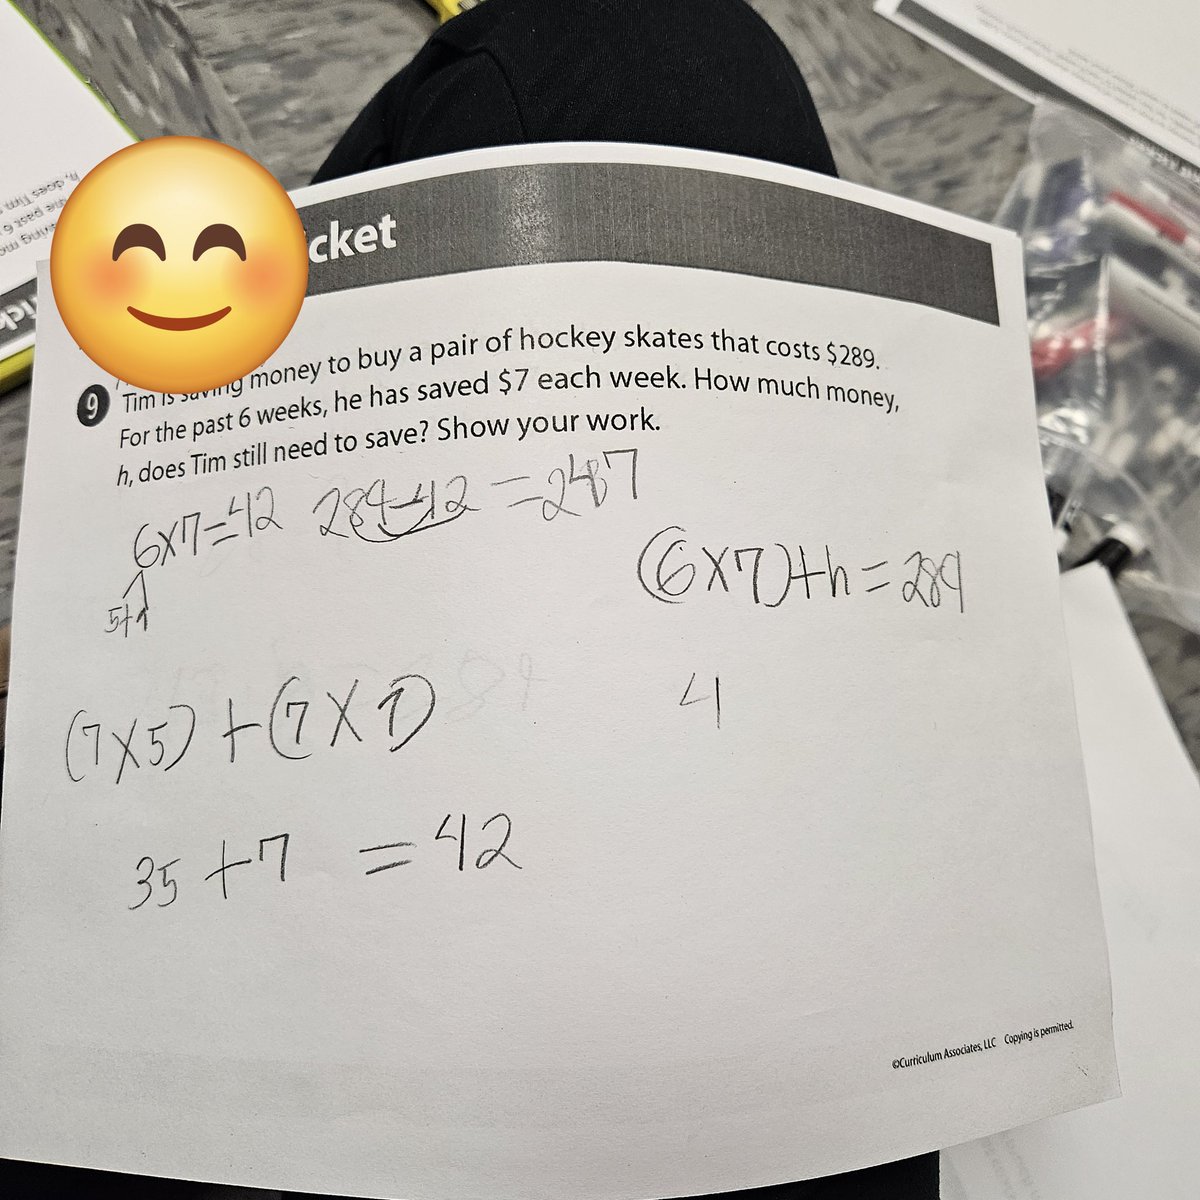 cket
9 Tim is saving money to buy a pair of hockey skates that costs $289.
For the past 6 weeks, he has saved $7 each week. How much money,
h, does Tim still need to save? Show your work.
6x7=42 289-42 =247
5+1
(6x7)+h=289
(7x5)+(7x1)
4
35+7 =42
©Curriculum Associates, LLC Copying is permitted.